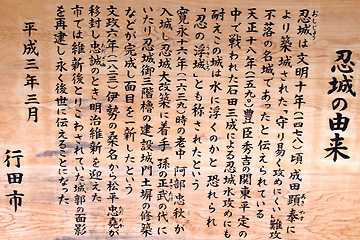 忍城の由来
忍城は文明十年(一四七八)頃、成田顕泰に
より築城された。守り易く攻めにくい難攻
不落の名城であったと伝えられている。
天正十八年(一五九〇)豊臣秀吉の関東平定の
中で戦われた石田三成による忍城水攻めにも
耐えこの城は水に浮くのかと恐れられ
「忍の浮城」とも称されたという。
寛永十六年(一六三九)時の老中阿部忠秋が
入城し忍城大改築に着手孫の正武の代に
いたり忍城御三階櫓の建設城門土塀の修築
などが完成し面目を一新したという。
文政六年(一八二三)伊勢の桑名から松平忠堯が
移封し忠誠のとき明治維新を迎えた
市では維新後とりこわされていた城郭の面影
を再建し永く後世に伝えることになった。
平成三年三月
行田市